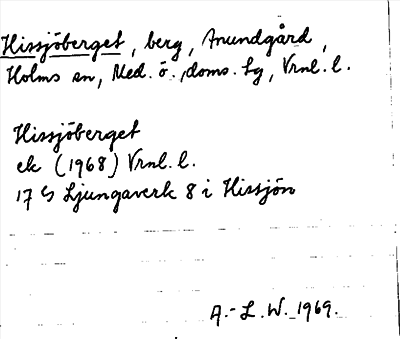 Hissjöberget, berg, Anundgård,
Holms sn, Med. ö., doms. lg, Vrnl. l.
Hissjöberget
ek (1968) Vrnl. l.
17 G Ljungaverk 8 i Hissjön
A.-L. W. 1969.